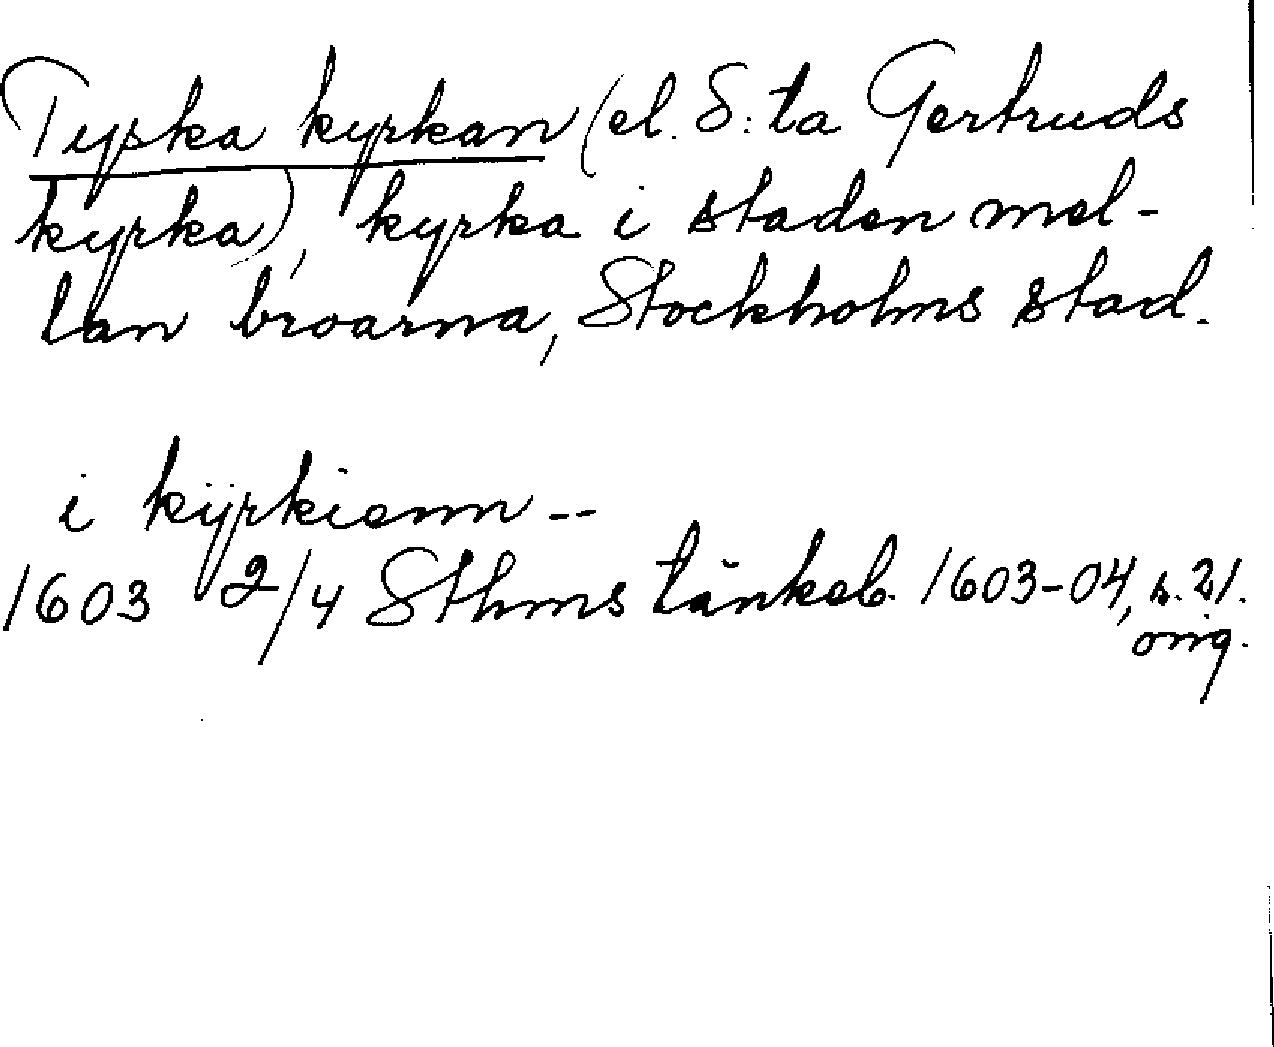 Tyska kyrkan (el. S:ta Gertruds
kyrka), kyrka i staden mel-
lan broarna, Stockholms stad.
i kÿrkienn --
1603 2/4 Sthms tänkeb. 1603-04, s. 21.
orig.